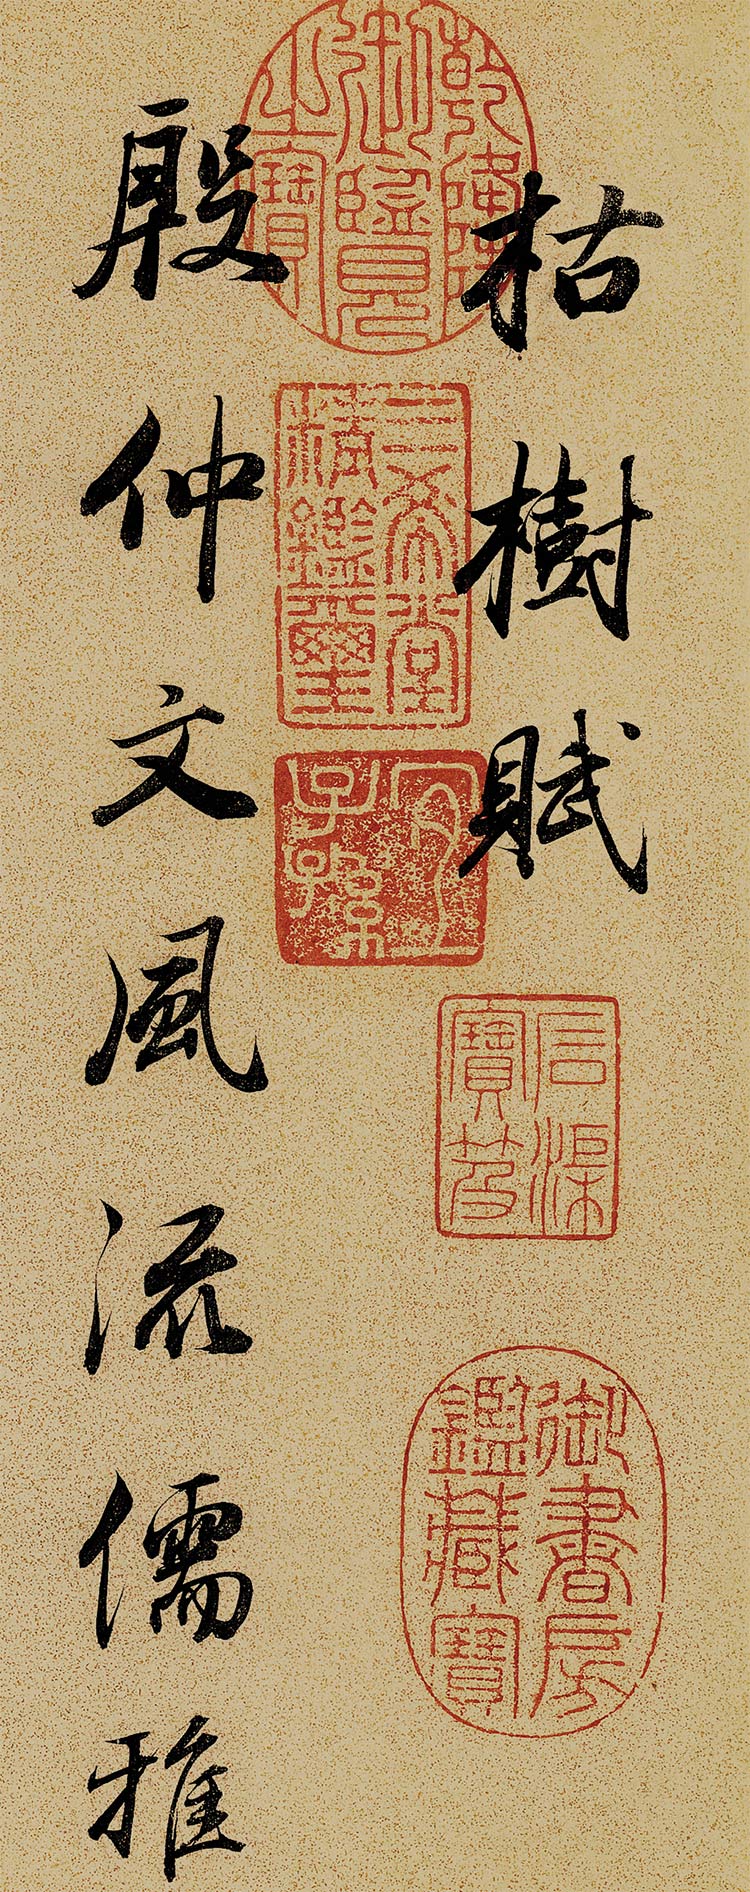 枯樹賦
石渠
寶笈
御書房
鑑藏寶
乾隆
御覽
之寶
三希堂
精鑑璽
宜
子孫
殷仲文風流儒雅